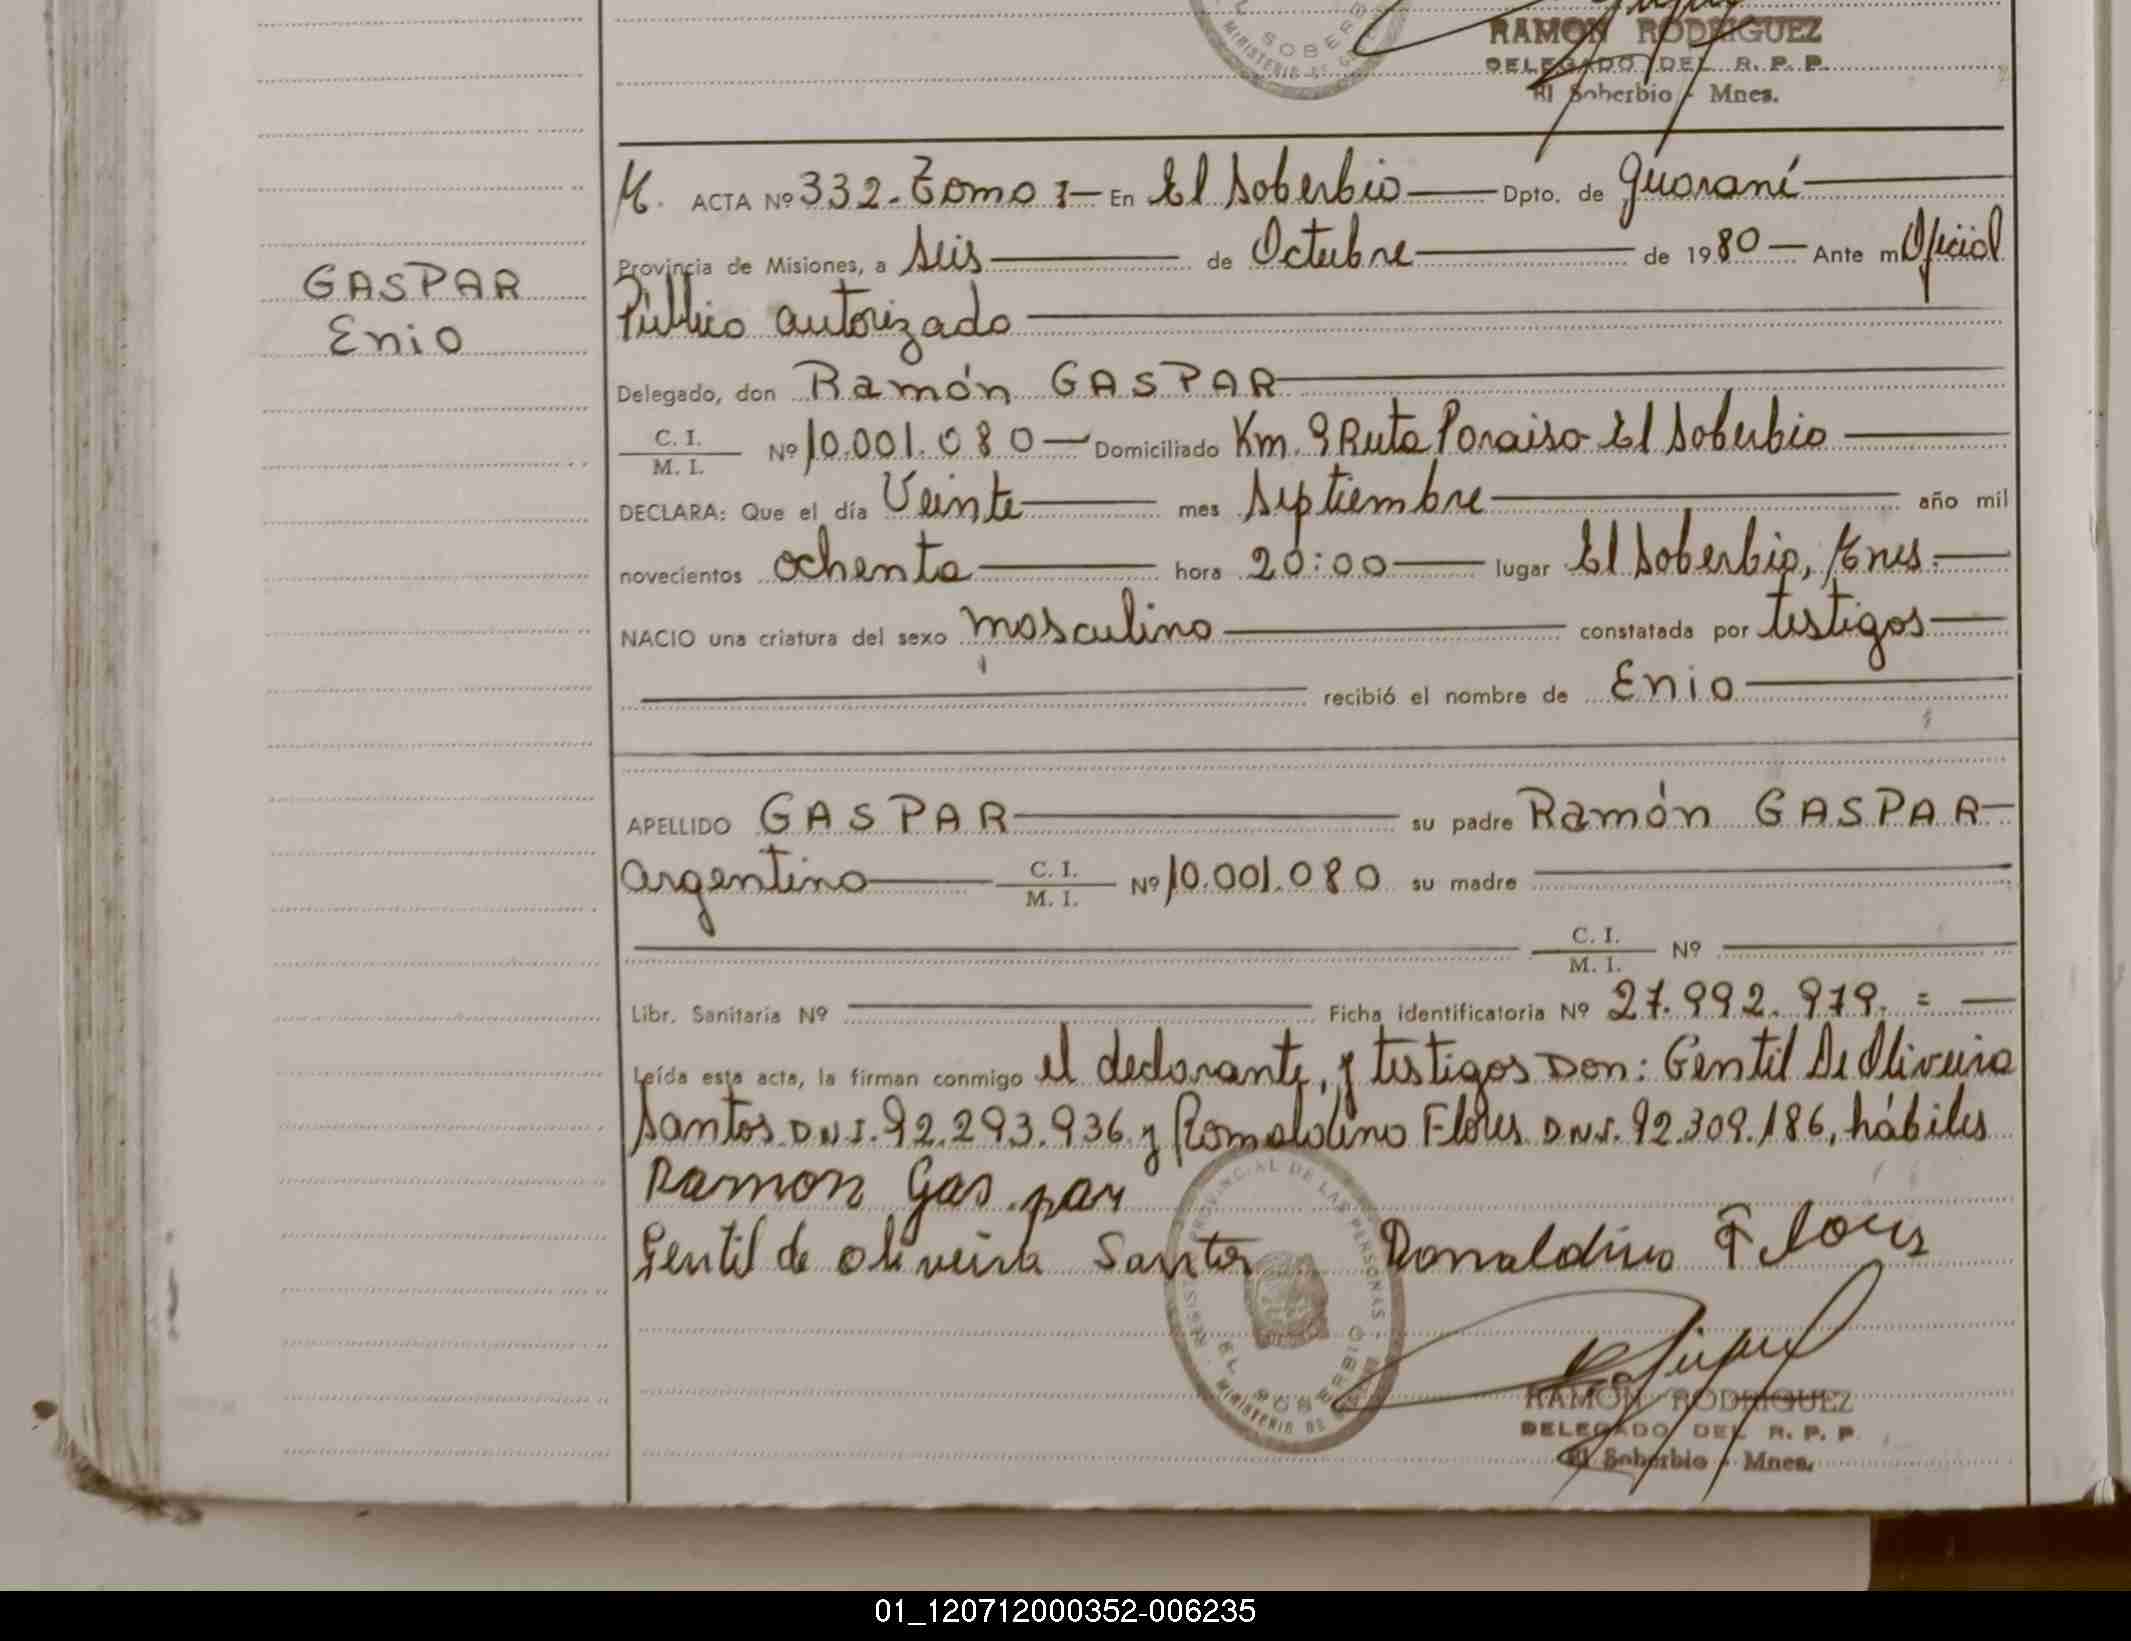 SOBERB
MINISTERIO DE G
RAMON RODRIGUEZ
DELEGADO DEL R. P. P.
El Soberbio - Mnes.
M. ACTA Nº 332. Tomo I En El Soberbio Dpto. de Guaraní
Provincia de Misiones, a Seis de Octubre de 1980 Ante m Oficial
Público autorizado
GASPAR
Enio
Delegado, don Ramón GASPAR
C. I.
M. I. Nº 10.001.080 Domiciliado Km. 9 Ruta Paraiso El Soberbio
DECLARA: Que el día Veinte mes Septiembre año mil
novecientos ochenta hora 20:00 lugar El Soberbio, Mnes.
NACIO una criatura del sexo masculino constatada por testigos
recibió el nombre de Enio
APELLIDO GASPAR su padre Ramón GASPAR
argentino C. I.
M. I. Nº 10.001.080 su madre
C. I.
M. I. Nº
Libr. Sanitaria Nº Ficha identificatoria Nº 27.992.979. =
Leída esta acta, la firman conmigo el declarante, y testigos Don: Gentil De Oliveira
Santos D.N.I. 92.293.936 y Romaldino Flores D.N.I. 92.309.186, hábiles
Ramon Gas par
Gentil de oliveira Santos Ronaldino Flores
REGISTRO PROVINCIAL DE LAS PERSONAS
EL SOBERBIO
MINISTERIO DE
RAMON RODRIGUEZ
DELEGADO DEL R. P. P
El Soberbio - Mnes.
01_120712000352-006235